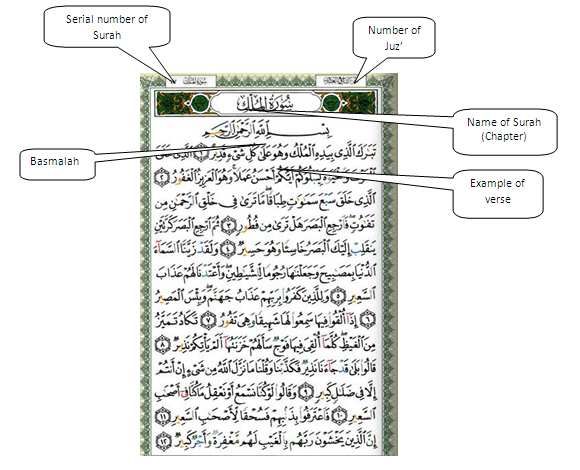 Serial number of
Surah
Number of
Juz'
سُورَةُ المُلْكِ
سُورَةُ المُلْكِ
Name of Surah
(Chapter)
بِسْمِ اللَّهِ الرَّحْمَٰنِ الرَّحِيمِ
Basmalah
تَبَارَكَ الَّذِي بِيَدِهِ الْمُلْكُ وَهُوَ عَلَىٰ كُلِّ شَيْءٍ قَدِيرٌ ١ الَّذِي خَلَقَ
الْمَوْتَ وَالْحَيَوٰةَ لِيَبْلُوَكُمْ أَيُّكُمْ أَحْسَنُ عَمَلًا وَهُوَ الْعَزِيزُ الْغَفُورُ ٢
Example of
verse
الَّذِي خَلَقَ سَبْعَ سَمَٰوَٰتٍ طِبَاقًا مَا تَرَىٰ فِي خَلْقِ الرَّحْمَٰنِ مِن
تَفَٰوُتٍ فَارْجِعِ الْبَصَرَ هَلْ تَرَىٰ مِن فُطُورٍ ٣ ثُمَّ ارْجِعِ الْبَصَرَ كَرَّتَيْنِ
يَنقَلِبْ إِلَيْكَ الْبَصَرُ خَاسِئًا وَهُوَ حَسِيرٌ ٤ وَلَقَدْ زَيَّنَّا السَّمَاءَ
الدُّنْيَا بِمَصَٰبِيحَ وَجَعَلْنَٰهَا رُجُومًا لِّلشَّيَٰطِينِ وَأَعْتَدْنَا لَهُمْ عَذَابَ
السَّعِيرِ ٥ وَلِلَّذِينَ كَفَرُوا بِرَبِّهِمْ عَذَابُ جَهَنَّمَ وَبِئْسَ الْمَصِيرُ
٦ إِذَا أُلْقُوا فِيهَا سَمِعُوا لَهَا شَهِيقًا وَهِيَ تَفُورُ ٧ تَكَادُ تَمَيَّزُ
مِنَ الْغَيْظِ كُلَّمَا أُلْقِيَ فِيهَا فَوْجٌ سَأَلَهُمْ خَزَنَتُهَا أَلَمْ يَأْتِكُمْ نَذِيرٌ ٨
قَالُوا بَلَىٰ قَدْ جَاءَنَا نَذِيرٌ فَكَذَّبْنَا وَقُلْنَا مَا نَزَّلَ اللَّهُ مِن شَيْءٍ إِنْ أَنتُمْ
إِلَّا فِي ضَلَٰلٍ كَبِيرٍ ٩ وَقَالُوا لَوْ كُنَّا نَسْمَعُ أَوْ نَعْقِلُ مَا كُنَّا فِي أَصْحَٰبِ
السَّعِيرِ ١٠ فَاعْتَرَفُوا بِذَنبِهِمْ فَسُحْقًا لِّأَصْحَٰبِ السَّعِيرِ ١١
إِنَّ الَّذِينَ يَخْشَوْنَ رَبَّهُم بِالْغَيْبِ لَهُم مَّغْفِرَةٌ وَأَجْرٌ كَبِيرٌ ١٢